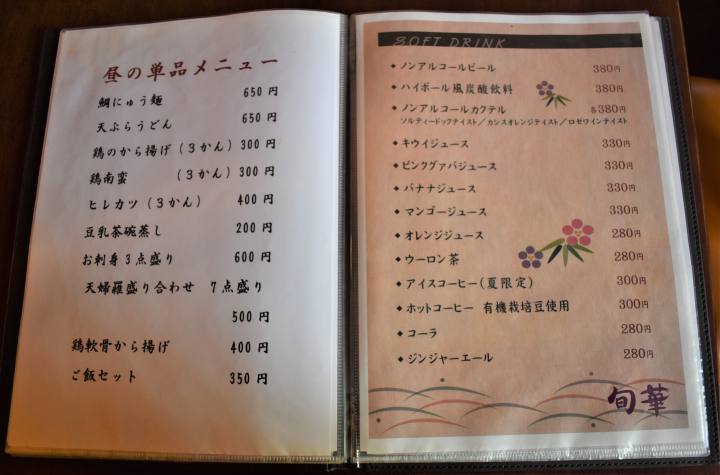 昼の単品メニュー
鯛にゅう麺 650円
天ぷらうどん 650円
鶏のから揚げ(3かん) 300円
鶏南蛮 (3かん) 300円
ヒレカツ(3かん) 400円
豆乳茶碗蒸し 200円
お刺身3点盛り 600円
天婦羅盛り合わせ 7点盛り
500円
鶏軟骨から揚げ 400円
ご飯セット 350円
SOFT DRINK
◆ノンアルコールビール 380円
◆ハイボール風炭酸飲料 380円
◆ノンアルコールカクテル 各380円
ソルティードックテイスト/カシスオレンジテイスト/ロゼワインテイスト
◆キウイジュース 330円
◆ピンクグァバジュース 330円
◆バナナジュース 330円
◆マンゴージュース 330円
◆オレンジジュース 280円
◆ウーロン茶 280円
◆アイスコーヒー(夏限定) 300円
◆ホットコーヒー 有機栽培豆使用 300円
◆コーラ 280円
◆ジンジャーエール 280円
旬華